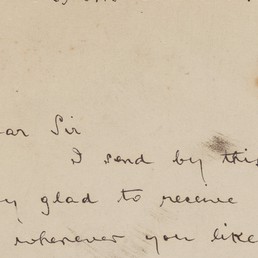 ear Sir
I send by this
y glad to receive
whenever you like